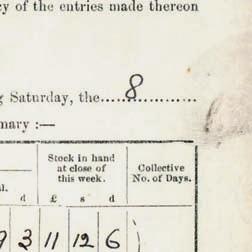 cy of the entries made thereon
g Saturday, the.....8..................
mary :—
Stock in hand
at close of
this week.
Collective
No. of Days.
l.
d £ s d
9 3 11 12 6